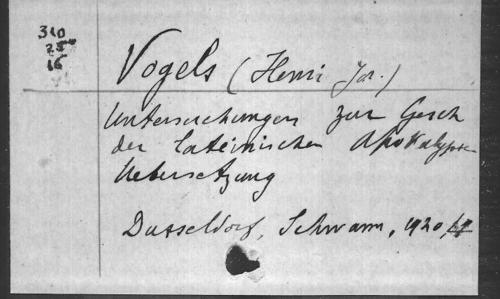 310
25
16
Vogels (Henri Jos.)
Untersuchungen zur Gesch
der lateinischen Apokalypse
Uebersetzung
Dusseldorf, Schwann, 1920,